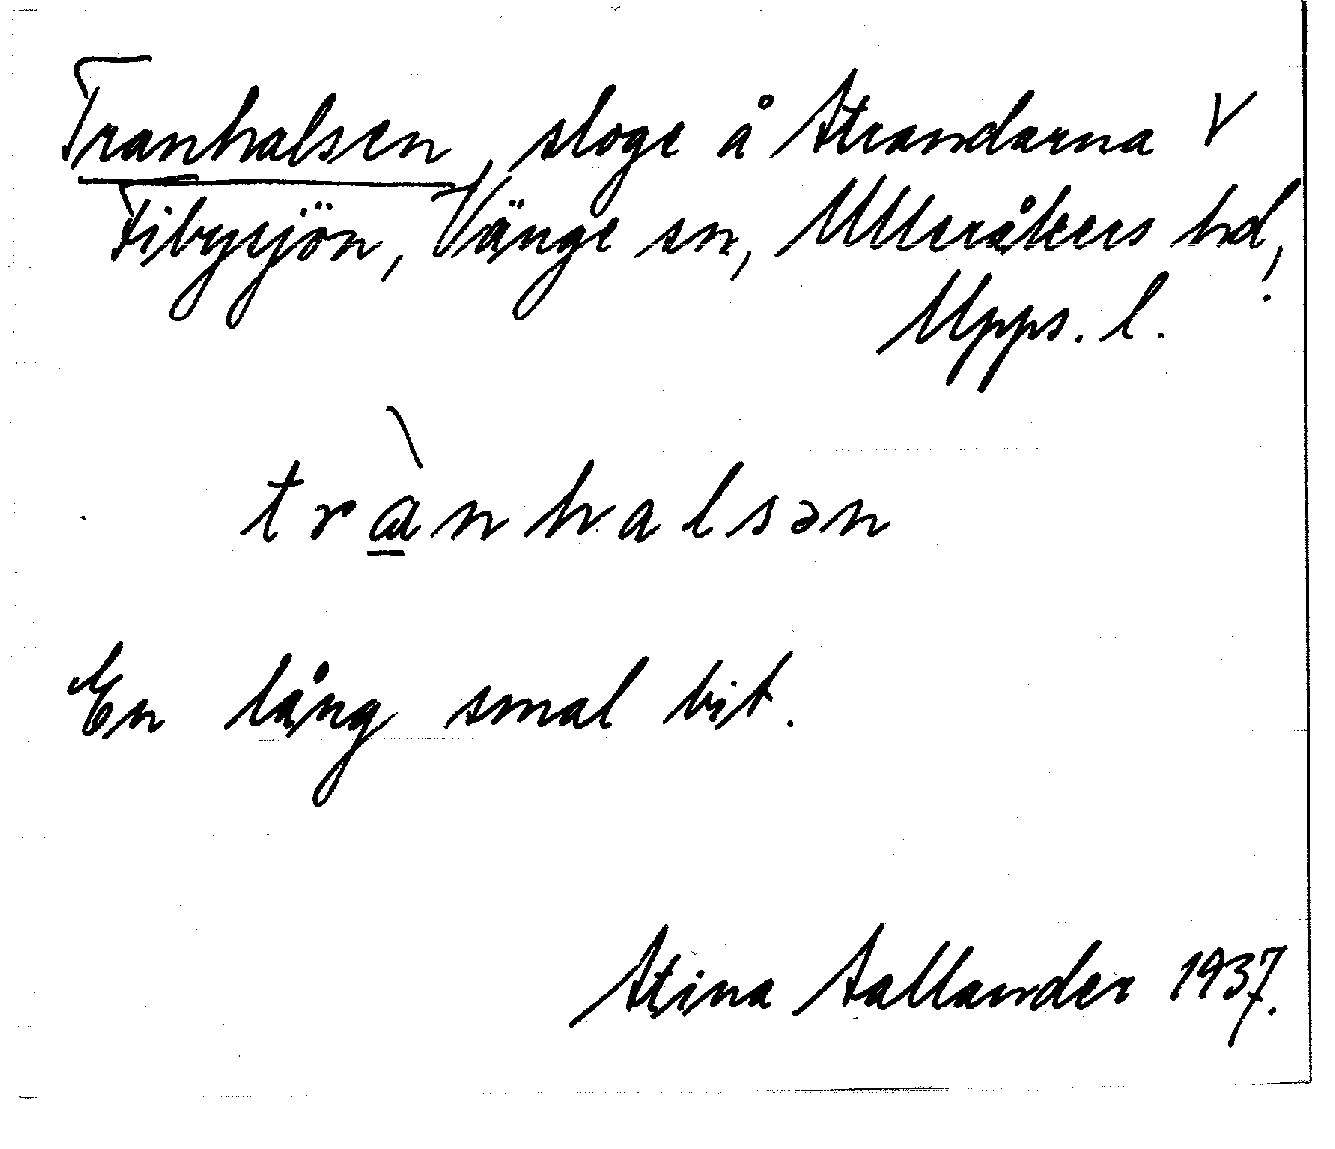 Tranhalsen, sloge å Strandarna V
Fibysjön, Vänge sn, Ulleråkers hd,
Upps. l.
trànhalsən
En lång smal bit.
Stina Sallander 1937.